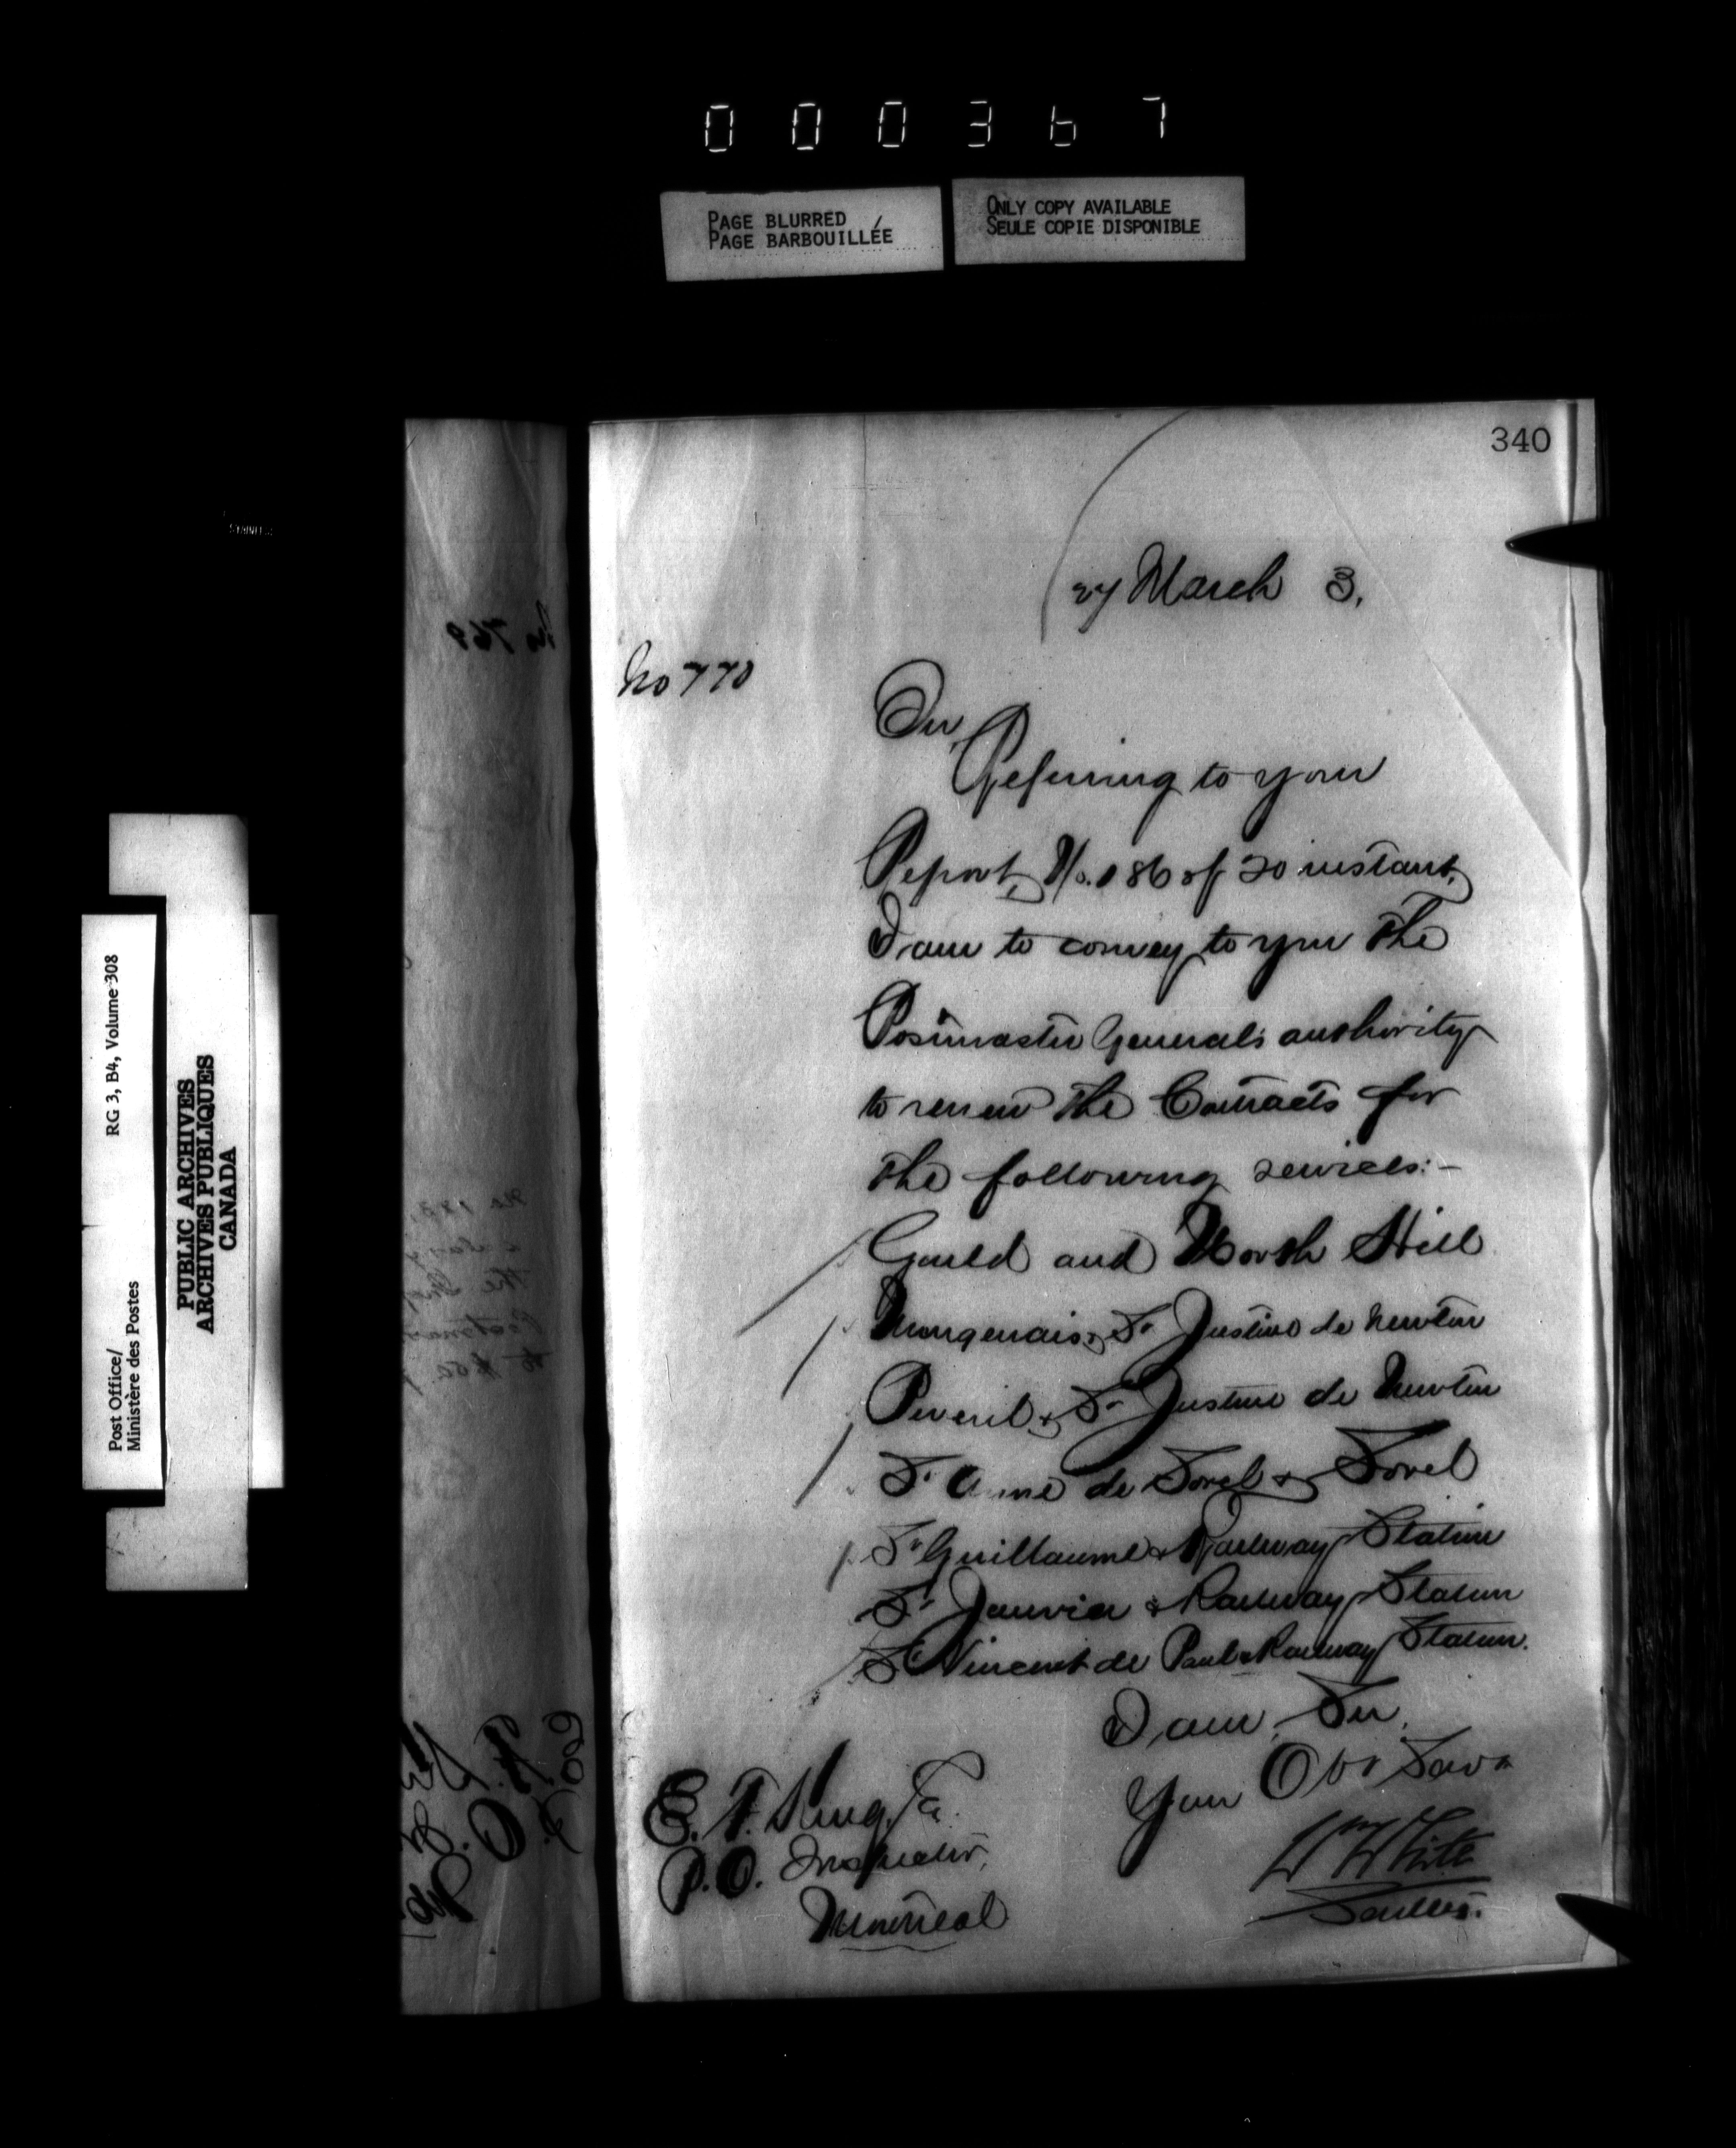 000367
PAGE BLURRED
PAGE BARBOUILLÉE
ONLY COPY AVAILABLE
SEULE COPIE DISPONIBLE
340
27 March 3.
No 770
Sir,
Referring to your
Report, No. 186 of 20 instant,
I am to convey to you the
Postmaster General's authority
to renew the Contracts for
the following services:-
Gould and North Hill
Mongenais & St Justine de Newton
Peveril & St Justine de Newton
St Anne de Sorel & Sorel
St Guillaume & Railway Station
St Janvier & Railway Station
St Vincent de Paul & Railway Station.
I am, Sir,
Your Obt Servt
Wm White
Secretary.
E. F. King, Esq.
P.O. Inspector,
Montreal
No 769
RG 3, B4, Volume 308
Post Office/
Ministère des Postes
PUBLIC ARCHIVES
ARCHIVES PUBLIQUES
CANADA